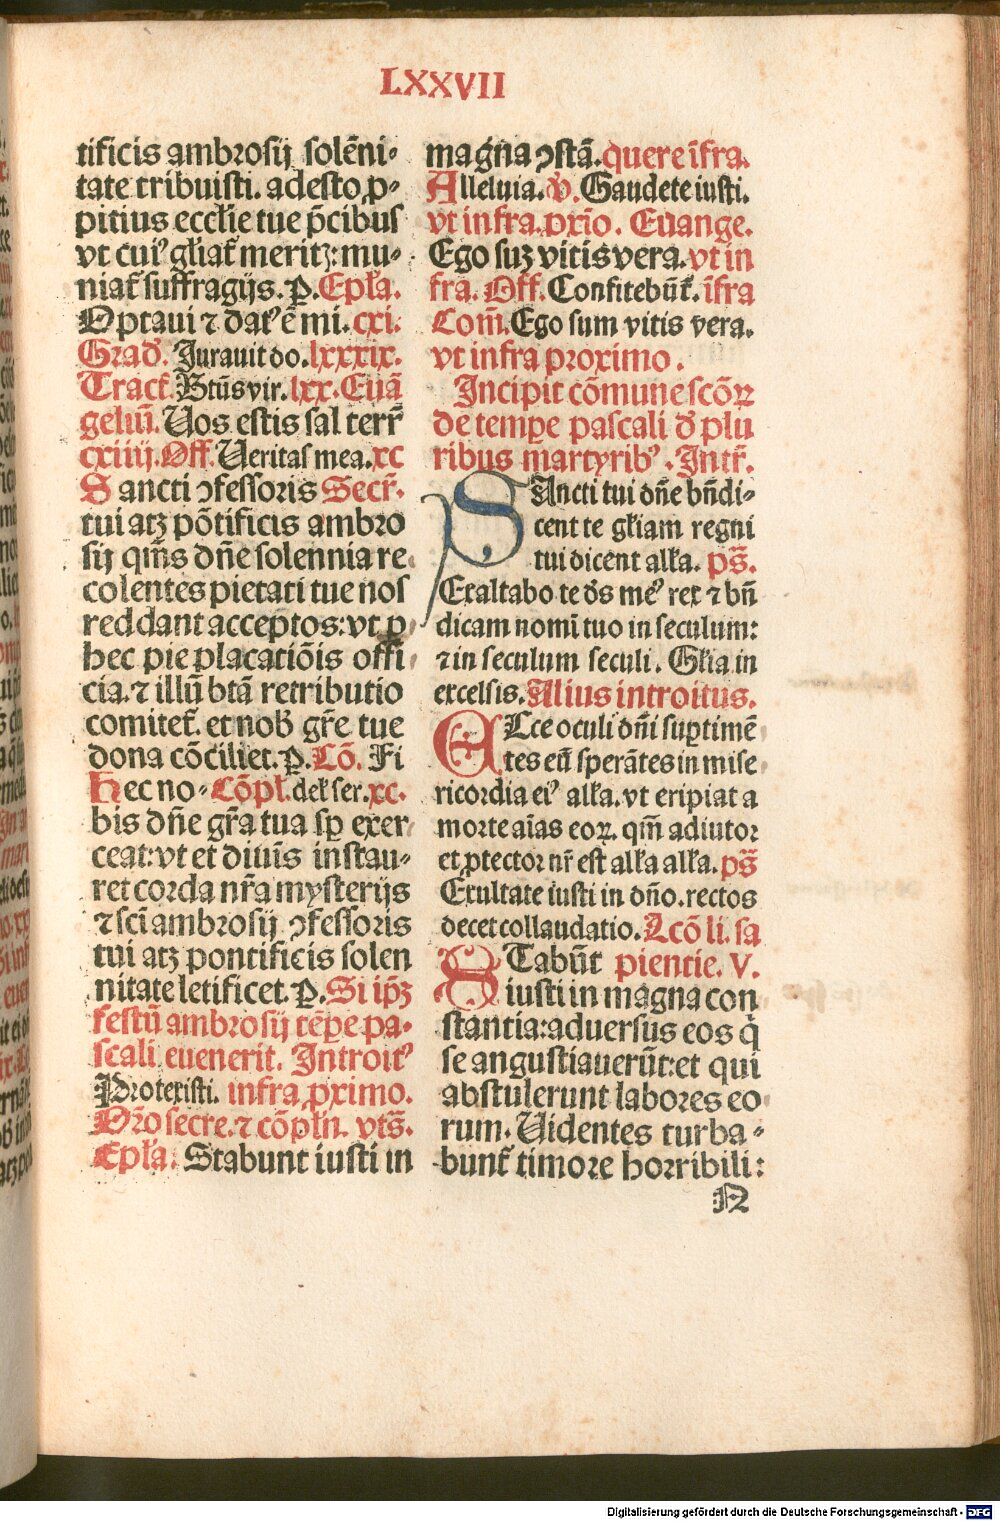 LXXVII
tificis ambrosij solẽni⸗
tate tribuisti. adesto ꝓ⸗
pitius eccl̃ie tue p̃cibus
vt cuiꝰ gl̃iat᷑ meritꝫ: mu⸗
niat᷑ suffragijs. ꝑ. Epl̃a.
Optaui ⁊ datꝰ ẽ mi. cxi.
Grad̃. Jurauit do. lxxxix.
Tract᷑. Bt̃us vir. lxx. Euã
geliũ. Uos estis sal terr̃
cxiiij. Off. Ueritas mea. xc
Sancti ꝯfessoris Secr̃.
tui atqꝫ põtificis ambro
sij qm̃s dñe solennia re
colentes pietati tue nos
reddant acceptos: vt ꝑ
hec pie placatiõis offi
cia. ⁊ illũ btã retributio
comitet᷑. et nob̃ gr̃e tue
dona cõciliet. ꝑ. Cõ. Fi
hec no⸗ Cõpl̃. del̃ ser. xc.
bis dñe gr̃a tua sp̱ exer
ceat: vt et diuĩs instau⸗
ret corda nr̃a mysterijs
⁊ sc̃i ambrosij ꝯfessoris
tui atqꝫ pontificis solen
nitate letificet. ꝑ. Si ip̃ꝫ
festũ ambrosij tẽꝑe pa⸗
scali euenerit. Introitꝰ
Protexisti. infra ꝓximo.
Or̃o secre. ⁊ cõpl̃n. vts̃.
Epl̃a. Stabunt iusti in
magna ꝯstã. quere ĩfra.
Alleluia. V̕. Gaudete iusti.
vt infra. ꝓxio. Euange.
Ego suꝫ vitis vera. vt in
fra. Off. Confitebũt᷑. ĩfra
Com̃. Ego sum vitis vera.
vt infra proximo.
Incipit cõmune scõꝝ
de tempe pascali d̃ plu
ribus martyribꝰ. Intr̃.
SAncti tui dñe bñdi⸗
cent te gl̃iam regni
tui dicent all̃a. ps̃.
Exaltabo te ds̃ meꝰ rex ⁊ bñ
dicam nomĩ tuo in seculum:
⁊ in seculum seculi. Gl̃ia in
excelsis. Alius introitus.
ECce oculi dñi suꝑ timẽ
tes eũ sperãtes in mise
ricordia eiꝰ all̃a. vt eripiat a
morte aĩas eoꝝ. qm̃ adiutor
et ꝓtector nr̃ est all̃a all̃a. ps̃
Exultate iusti in dño. rectos
decet collaudatio. Lcõ li. sa
STabũt pientie. V.
iusti in magna con
stantia: aduersus eos q̇
se angustiauerũt: et qui
abstulerunt labores eo
rum. Uidentes turba⸗
bunt᷑ timore horribili:
N
Digitalisierung gefördert durch die Deutsche Forschungsgemeinschaft - DFG